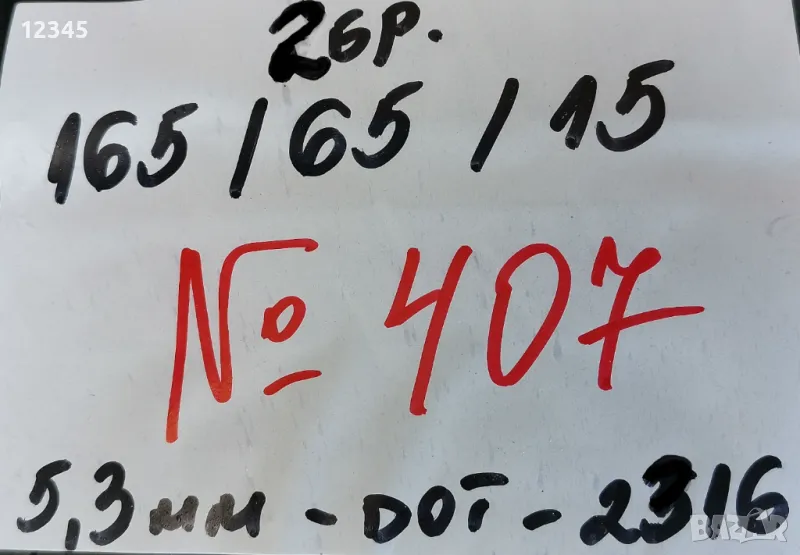 12345
2бр.
165/65/15
№ 407
5,3мм - DOT - 2316
BAZAR